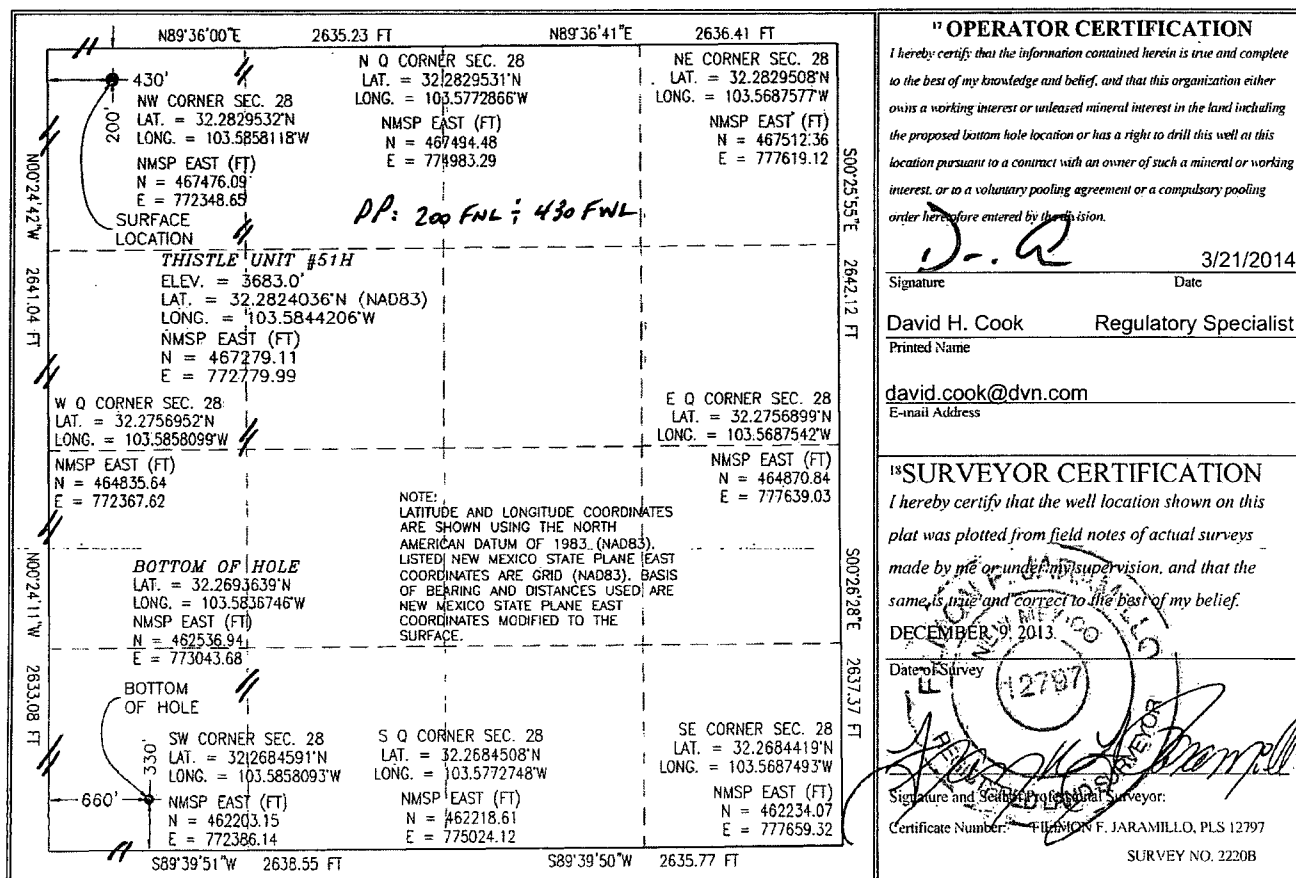 N89°36'00"E 2635.23 FT N89°36'41"E 2636.41 FT
430'
200'
NW CORNER SEC. 28
LAT. = 32.2829532°N
LONG. = 103.5858118°W
NMSP EAST (FT)
N = 467476.09
E = 772348.65
SURFACE
LOCATION
N Q CORNER SEC. 28
LAT. = 32.2829531°N
LONG. = 103.5772866°W
NMSP EAST (FT)
N = 467494.48
E = 774983.29
NE CORNER SEC. 28
LAT. = 32.2829508°N
LONG. = 103.5687577°W
NMSP EAST (FT)
N = 467512.36
E = 777619.12
PP: 200 FNL ÷ 430 FWL
N00°24'42"W 2641.04 FT
S00°25'55"E 2642.12 FT
THISTLE UNIT #51H
ELEV. = 3683.0'
LAT. = 32.2824036°N (NAD83)
LONG. = 103.5844206°W
NMSP EAST (FT)
N = 467279.11
E = 772779.99
W Q CORNER SEC. 28
LAT. = 32.2756952°N
LONG. = 103.5858099°W
NMSP EAST (FT)
N = 464835.64
E = 772367.62
E Q CORNER SEC. 28
LAT. = 32.2756899°N
LONG. = 103.5687542°W
NMSP EAST (FT)
N = 464870.84
E = 777639.03
NOTE:
LATITUDE AND LONGITUDE COORDINATES
ARE SHOWN USING THE NORTH
AMERICAN DATUM OF 1983 (NAD83).
LISTED NEW MEXICO STATE PLANE EAST
COORDINATES ARE GRID (NAD83). BASIS
OF BEARING AND DISTANCES USED ARE
NEW MEXICO STATE PLANE EAST
COORDINATES MODIFIED TO THE
SURFACE.
N00°24'11"W 2633.08 FT
S00°26'28"E 2637.37 FT
BOTTOM OF HOLE
LAT. = 32.2693639°N
LONG. = 103.5836746°W
NMSP EAST (FT)
N = 462536.94
E = 773043.68
BOTTOM
OF HOLE
330'
660'
SW CORNER SEC. 28
LAT. = 32.2684591°N
LONG. = 103.5858093°W
NMSP EAST (FT)
N = 462203.15
E = 772386.14
S Q CORNER SEC. 28
LAT. = 32.2684508°N
LONG. = 103.5772748°W
NMSP EAST (FT)
N = 462218.61
E = 775024.12
SE CORNER SEC. 28
LAT. = 32.2684419°N
LONG. = 103.5687493°W
NMSP EAST (FT)
N = 462234.07
E = 777659.32
S89°39'51"W 2638.55 FT S89°39'50"W 2635.77 FT
17 OPERATOR CERTIFICATION
I hereby certify that the information contained herein is true and complete
to the best of my knowledge and belief, and that this organization either
owns a working interest or unleased mineral interest in the land including
the proposed bottom hole location or has a right to drill this well at this
location pursuant to a contract with an owner of such a mineral or working
interest, or to a voluntary pooling agreement or a compulsory pooling
order heretofore entered by the division.
3/21/2014
Signature Date
David H. Cook Regulatory Specialist
Printed Name
david.cook@dvn.com
E-mail Address
18 SURVEYOR CERTIFICATION
I hereby certify that the well location shown on this
plat was plotted from field notes of actual surveys
made by me or under my supervision, and that the
same is true and correct to the best of my belief.
DECEMBER 9, 2013
Date of Survey
FILIMON F. JARAMILLO
NEW MEXICO
12797
REGISTERED LAND SURVEYOR
Signature and Seal of Professional Surveyor:
Certificate Number: FILIMON F. JARAMILLO, PLS 12797
SURVEY NO. 2220B